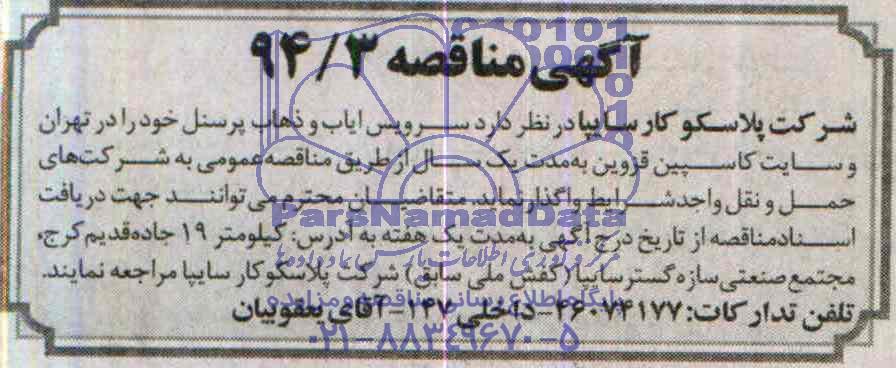 آگهی مناقصه ۹۴/۳
شرکت پلاسکو کار سایپا در نظر دارد سرویس ایاب و ذهاب پرسنل خود را در تهران
و سایت کاسپین قزوین به‌مدت یک سال از طریق مناقصه عمومی به شرکت‌های
حمل و نقل واجد شرایط واگذار نماید. متقاضیان محترم می‌توانند جهت دریافت
اسناد مناقصه از تاریخ درج آگهی به‌مدت یک هفته به آدرس: کیلومتر ۱۹ جاده قدیم کرج،
مجتمع صنعتی سازه گستر سایپا (کفش ملی سابق) شرکت پلاسکو کار سایپا مراجعه نمایند.
تلفن تدارکات: ۴۶۰۷۴۱۷۷-داخلی ۱۴۷-آقای یعقوبیان
ParsNamadData
پایگاه اطلاع رسانی مناقصه و مزایده
۰۲۱-۸۸۳۴۹۶۷۰-۵